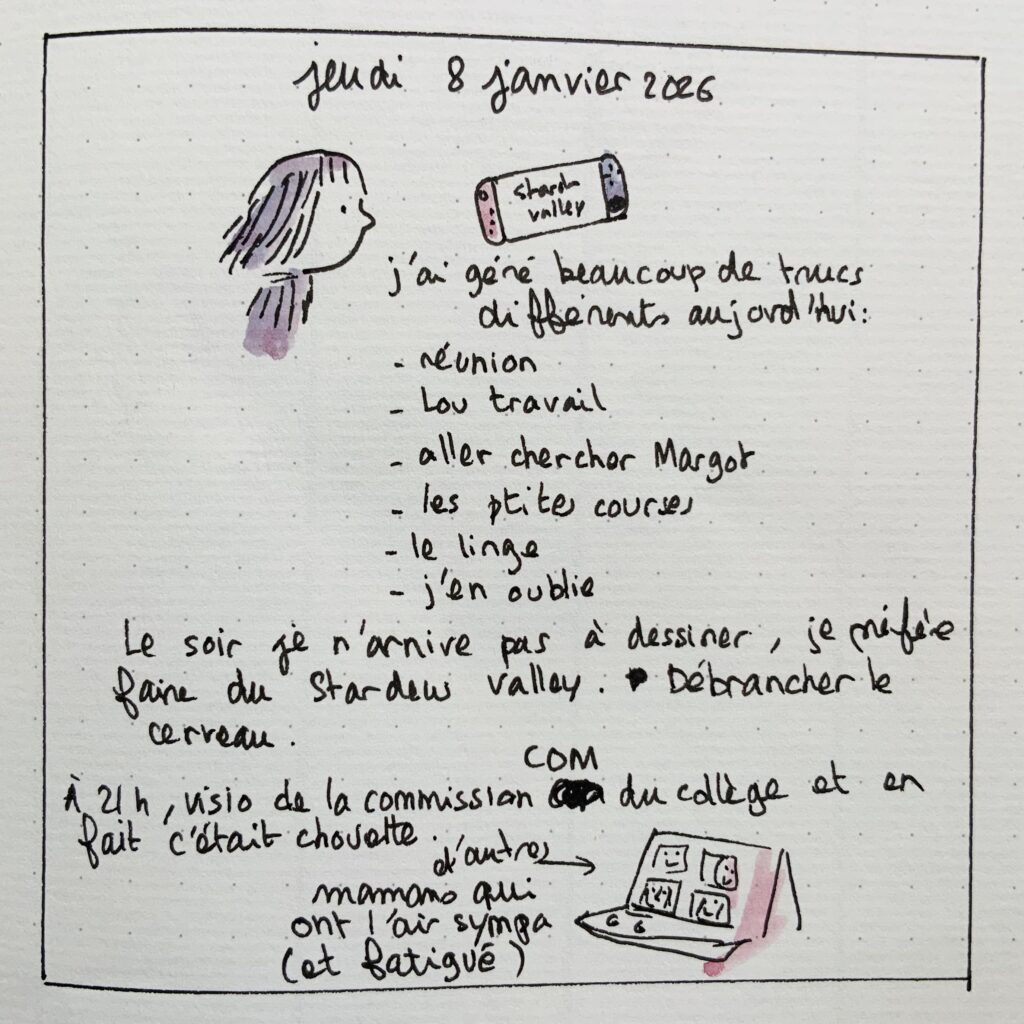 jeudi 8 janvier 2026
Stardew
valley
j'ai géré beaucoup de trucs
différents aujord'hui:
- réunion
- Lou travail
- aller chercher Margot
- les ptites courses
- le linge
- j'en oublie
Le soir je n'arrive pas à dessiner, je préfère
faire du Stardew valley. Débrancher le
cerveau.
COM
À 21h, visio de la commission du collège et en
fait c'était chouette.
d'autres
mamans qui
ont l'air sympa
(et fatigué)